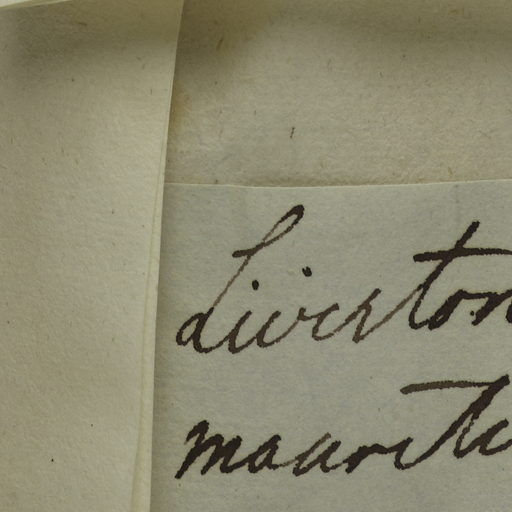 Liverton
mauriti